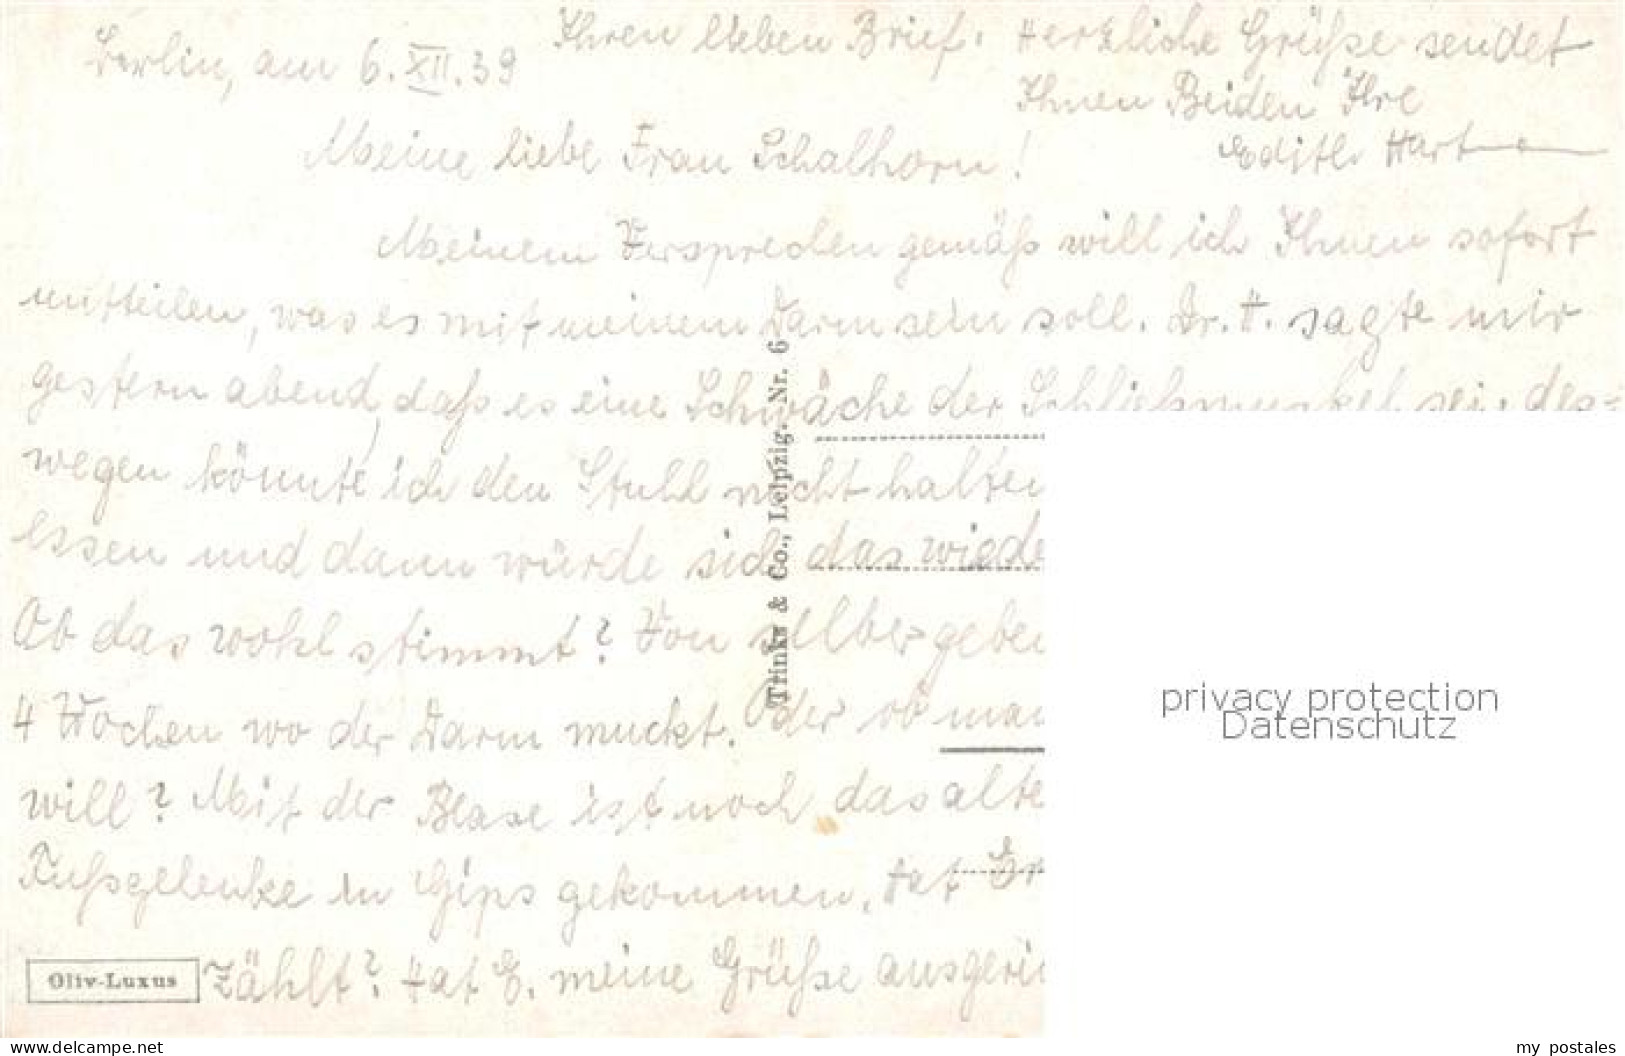 Berlin, am 6. XII. 39
Ihren lieben Brief. Herzliche Grüße sendet
Ihnen Beiden Ihre
Edith Hart
Meine liebe Frau Schalhorn!
Meinem Versprechen gemäß will ich Ihnen sofort
mitteilen, was es mit meinem Darm sein soll. Dr. H. sagte mir
gestern abend, daß es eine Schwäche der Schließmuskel sei, des-
wegen könnte ich den Stuhl nicht halten
essen und dann würde sich das wiede
Ob das wohl stimmt? Von selber geben
4 Wochen wo der Darm muckt. Oder ob man
will? Mit der Blase ist noch das alte
Fußgelenke in Gips gekommen. Hat Er
zählt? Hat E. meine Grüße ausgeri
Trinks & Co., Leipzig. Nr. 6
Oliv-Luxus
privacy protection
Datenschutz
www.delcampe.net
my postales